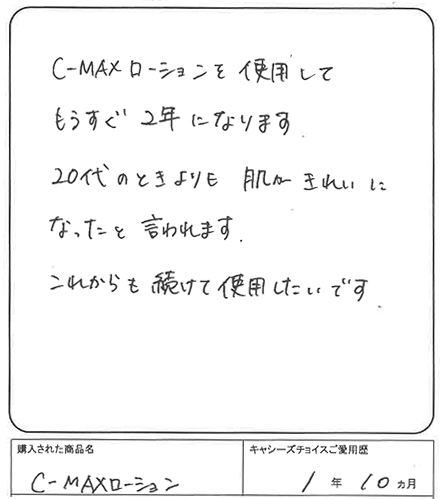 C-MAXローションを使用して
もうすぐ2年になります.
20代のときよりも 肌が きれいに
なったと 言われます.
これからも 続けて使用したいです.
購入された商品名
キャシーズチョイスご愛用歴
C-MAXローション
1 年 10 ヵ月